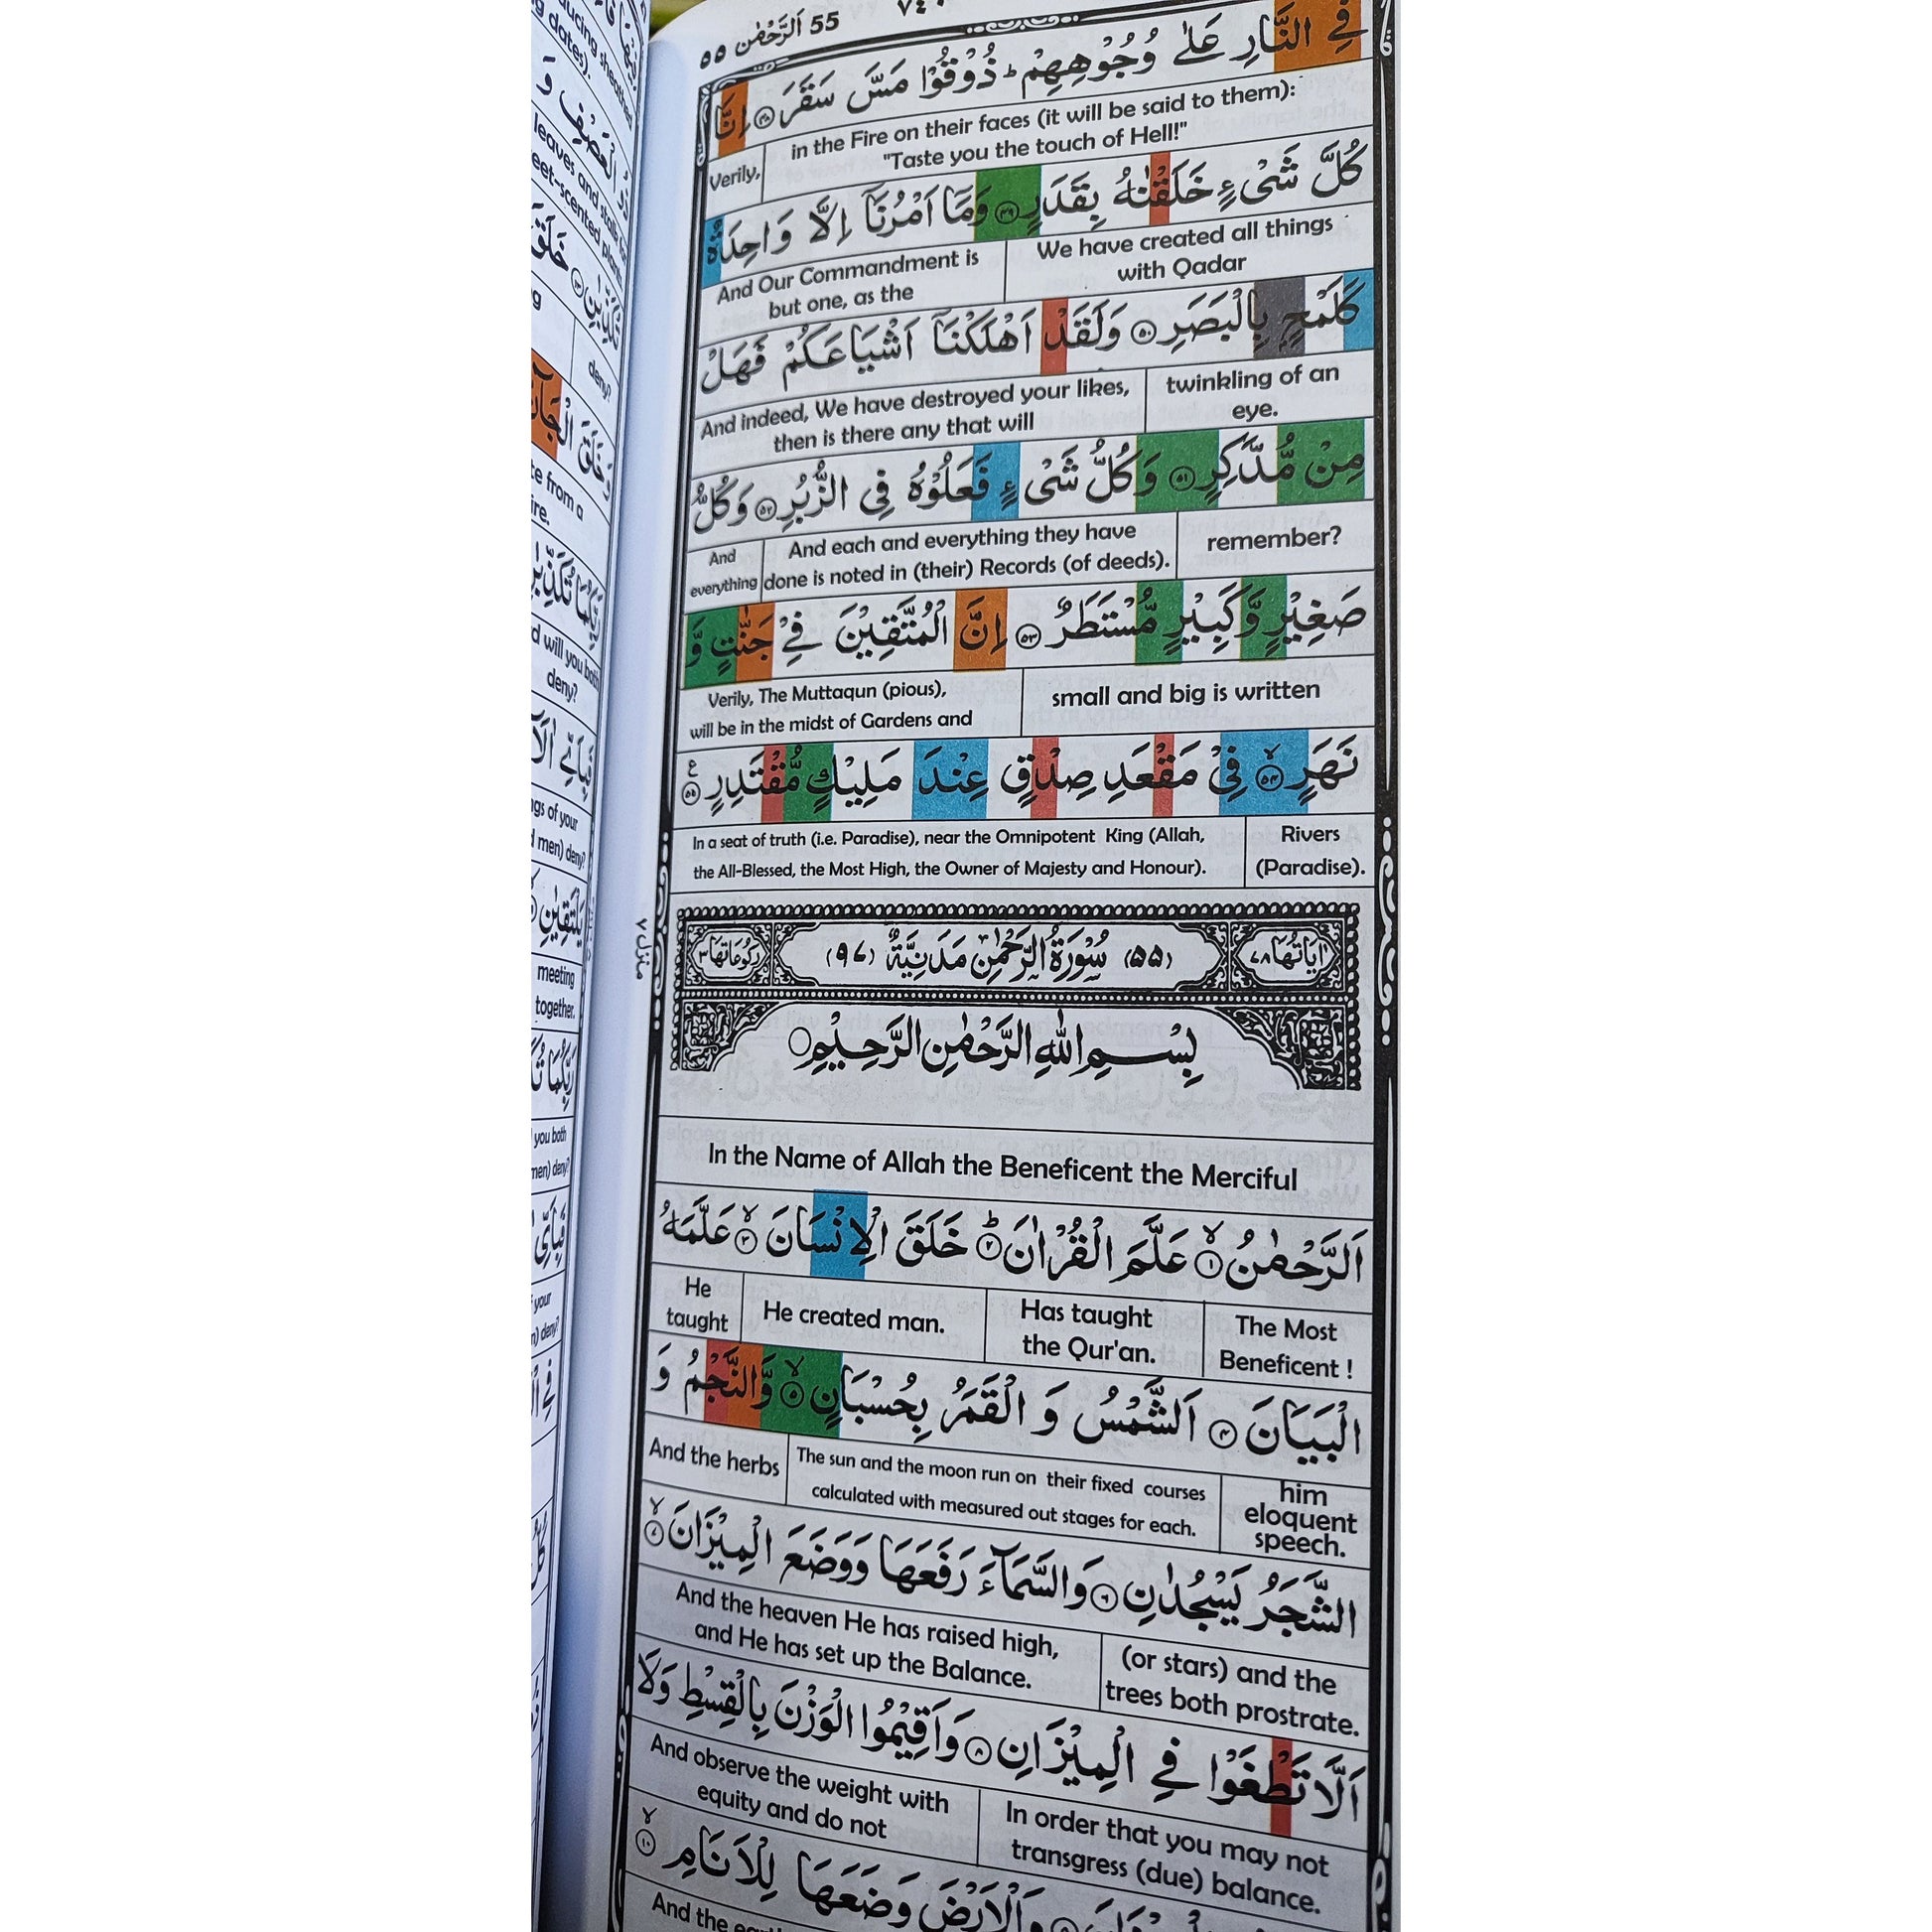 55 اَلرَّحْمٰن ٥٥
٧٤٠
فِي النَّارِ عَلٰى وُجُوْهِهِمْ ؕ ذُوْقُوْا مَسَّ سَقَرَ ﴿٤٨﴾ اِنَّا
in the Fire on their faces (it will be said to them): "Taste you the touch of Hell!"
Verily,
كُلَّ شَىْءٍ خَلَقْنٰهُ بِقَدَرٍ ﴿٤٩﴾ وَمَاۤ اَمْرُنَاۤ اِلَّا وَاحِدَةٌ
We have created all things with Qadar
And Our Commandment is but one, as the
كَلَمْحٍۢ بِالْبَصَرِ ﴿٥٠﴾ وَلَقَدْ اَهْلَكْنَاۤ اَشْيَاعَكُمْ فَهَلْ
twinkling of an eye.
And indeed, We have destroyed your likes, then is there any that will
مِنْ مُّدَّكِرٍ ﴿٥١﴾ وَكُلُّ شَىْءٍ فَعَلُوْهُ فِى الزُّبُرِ ﴿٥٢﴾ وَكُلُّ
remember?
And each and everything they have done is noted in (their) Records (of deeds).
And everything
صَغِيْرٍ وَّكَبِيْرٍ مُّسْتَطَرٌ ﴿٥٣﴾ اِنَّ الْمُتَّقِيْنَ فِيْ جَنّٰتٍ وَّ
small and big is written
Verily, The Muttaqun (pious), will be in the midst of Gardens and
نَهَرٍ ﴿٥٤﴾ۙ فِيْ مَقْعَدِ صِدْقٍ عِنْدَ مَلِيْكٍ مُّقْتَدِرٍ ﴿٥٥﴾ ع
Rivers (Paradise).
In a seat of truth (i.e. Paradise), near the Omnipotent King (Allah, the All-Blessed, the Most High, the Owner of Majesty and Honour).
اٰيَاتُهَا ٧٨ (٥٥) سُوْرَةُ الرَّحْمٰنِ مَدَنِيَّةٌ (٩٧) رُكُوْعَاتُهَا ٣
بِسْمِ اللّٰهِ الرَّحْمٰنِ الرَّحِيْمِ
In the Name of Allah the Beneficent the Merciful
اَلرَّحْمٰنُ ﴿١﴾ۙ عَلَّمَ الْقُرْاٰنَ ﴿٢﴾ؕ خَلَقَ الْاِنْسَانَ ﴿٣﴾ۙ عَلَّمَهُ
The Most Beneficent !
Has taught the Qur'an.
He created man.
He taught
الْبَيَانَ ﴿٤﴾ اَلشَّمْسُ وَ الْقَمَرُ بِحُسْبَانٍ ﴿٥﴾ۙ وَّالنَّجْمُ وَ
him eloquent speech.
The sun and the moon run on their fixed courses calculated with measured out stages for each.
And the herbs
الشَّجَرُ يَسْجُدٰنِ ﴿٦﴾ وَالسَّمَآءَ رَفَعَهَا وَوَضَعَ الْمِيْزَانَ ﴿٧﴾ۙ
(or stars) and the trees both prostrate.
And the heaven He has raised high, and He has set up the Balance.
اَلَّا تَطْغَوْا فِي الْمِيْزَانِ ﴿٨﴾ وَاَقِيْمُوا الْوَزْنَ بِالْقِسْطِ وَلَا
In order that you may not transgress (due) balance.
And observe the weight with equity and do not
وَالْاَرْضَ وَضَعَهَا لِلْاَنَامِ ﴿١٠﴾ۙ
And the
منزل ٧